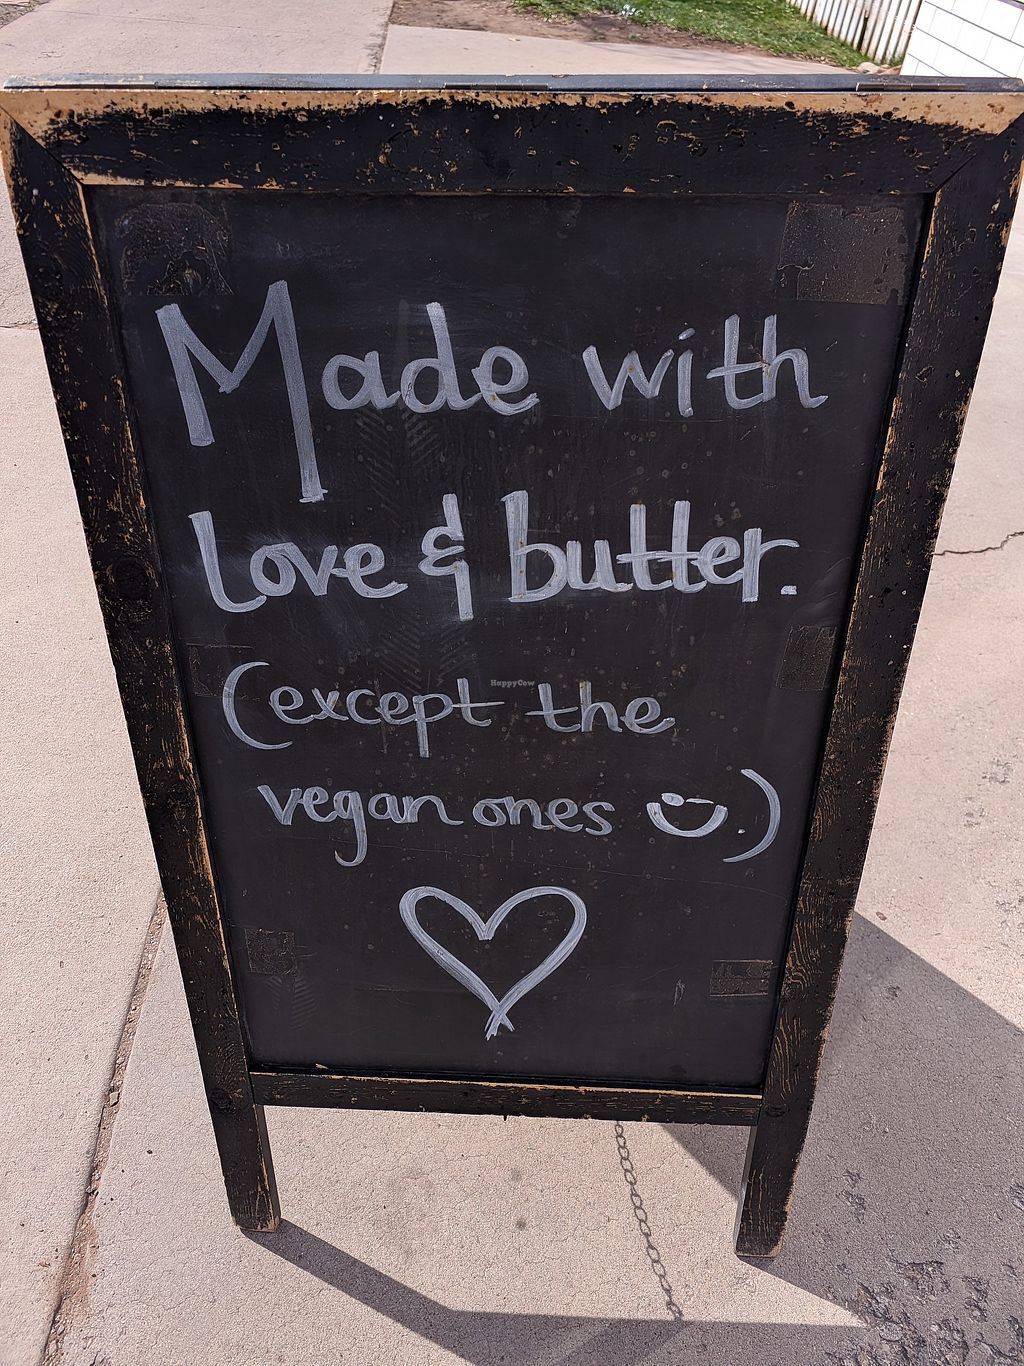 Made with
love & butter.
HappyCow
(except the
vegan ones 😉.)